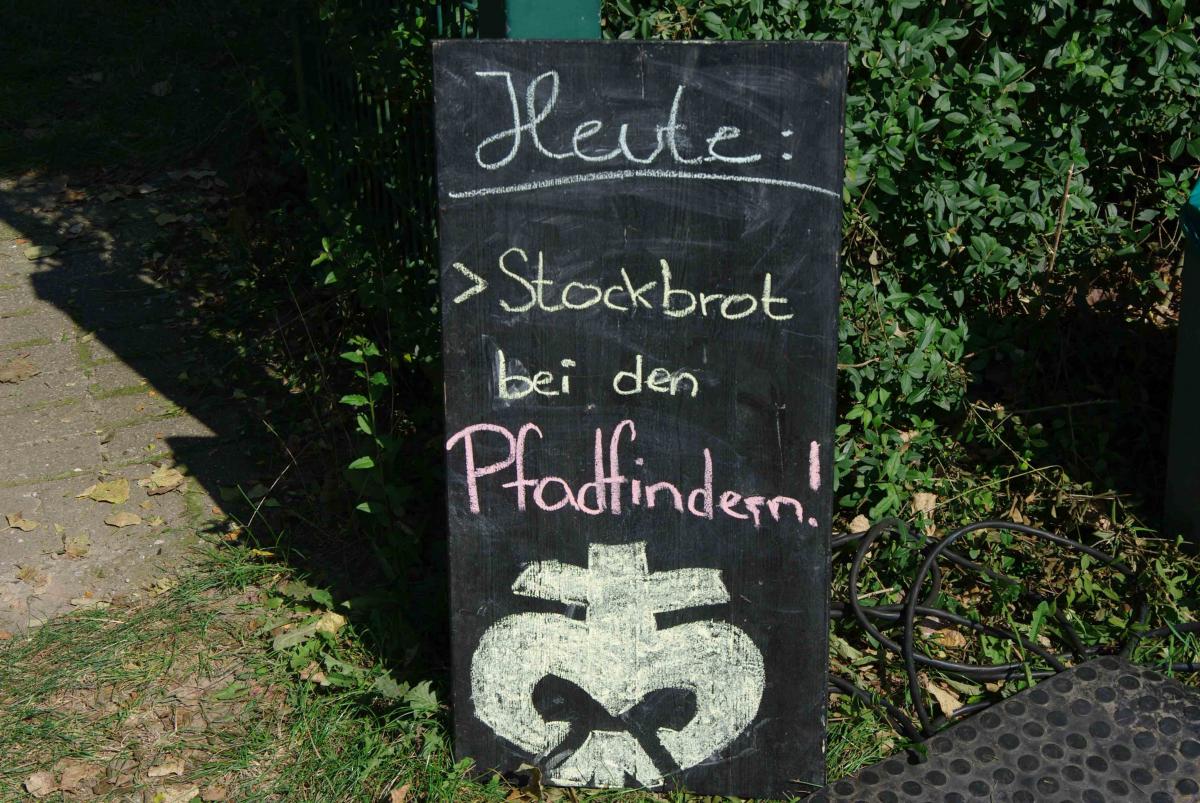 Heute:
> Stockbrot
bei den
Pfadfindern!